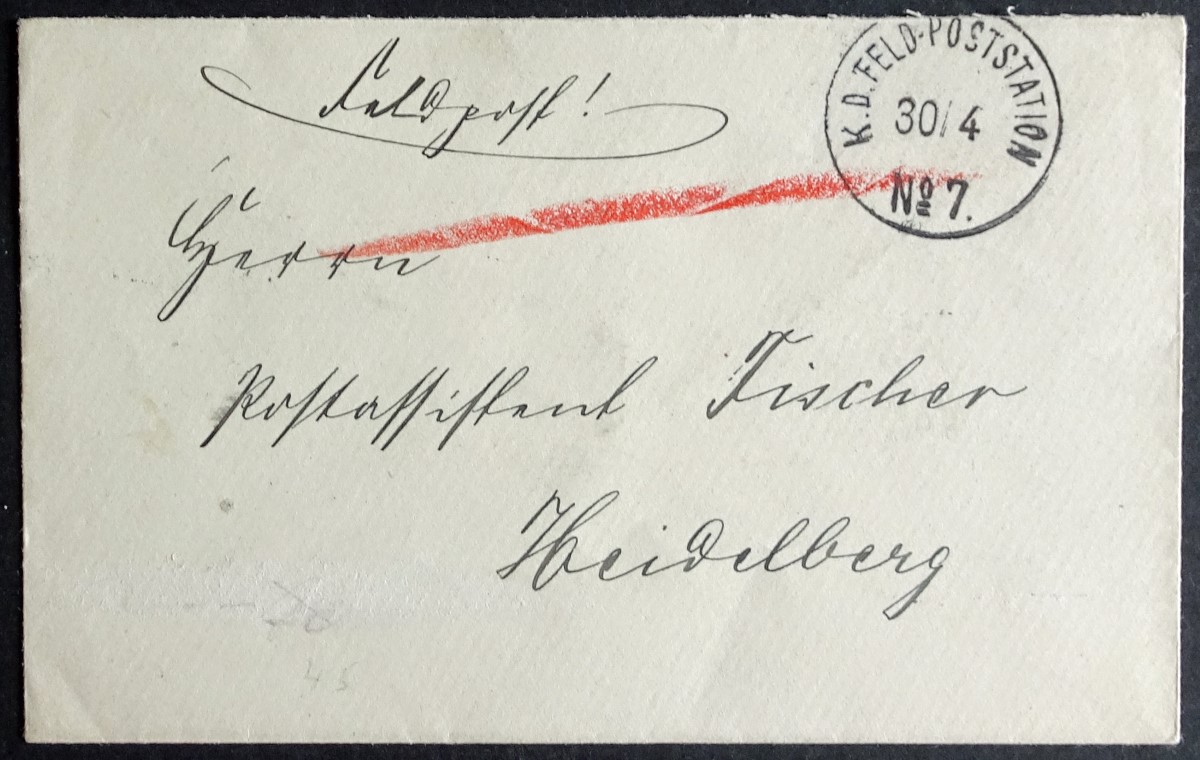 Feldpost!
K.D. FELD-POSTSTATION
30/4
No 7.
Herrn
Postassistent Fischer
Heidelberg
45